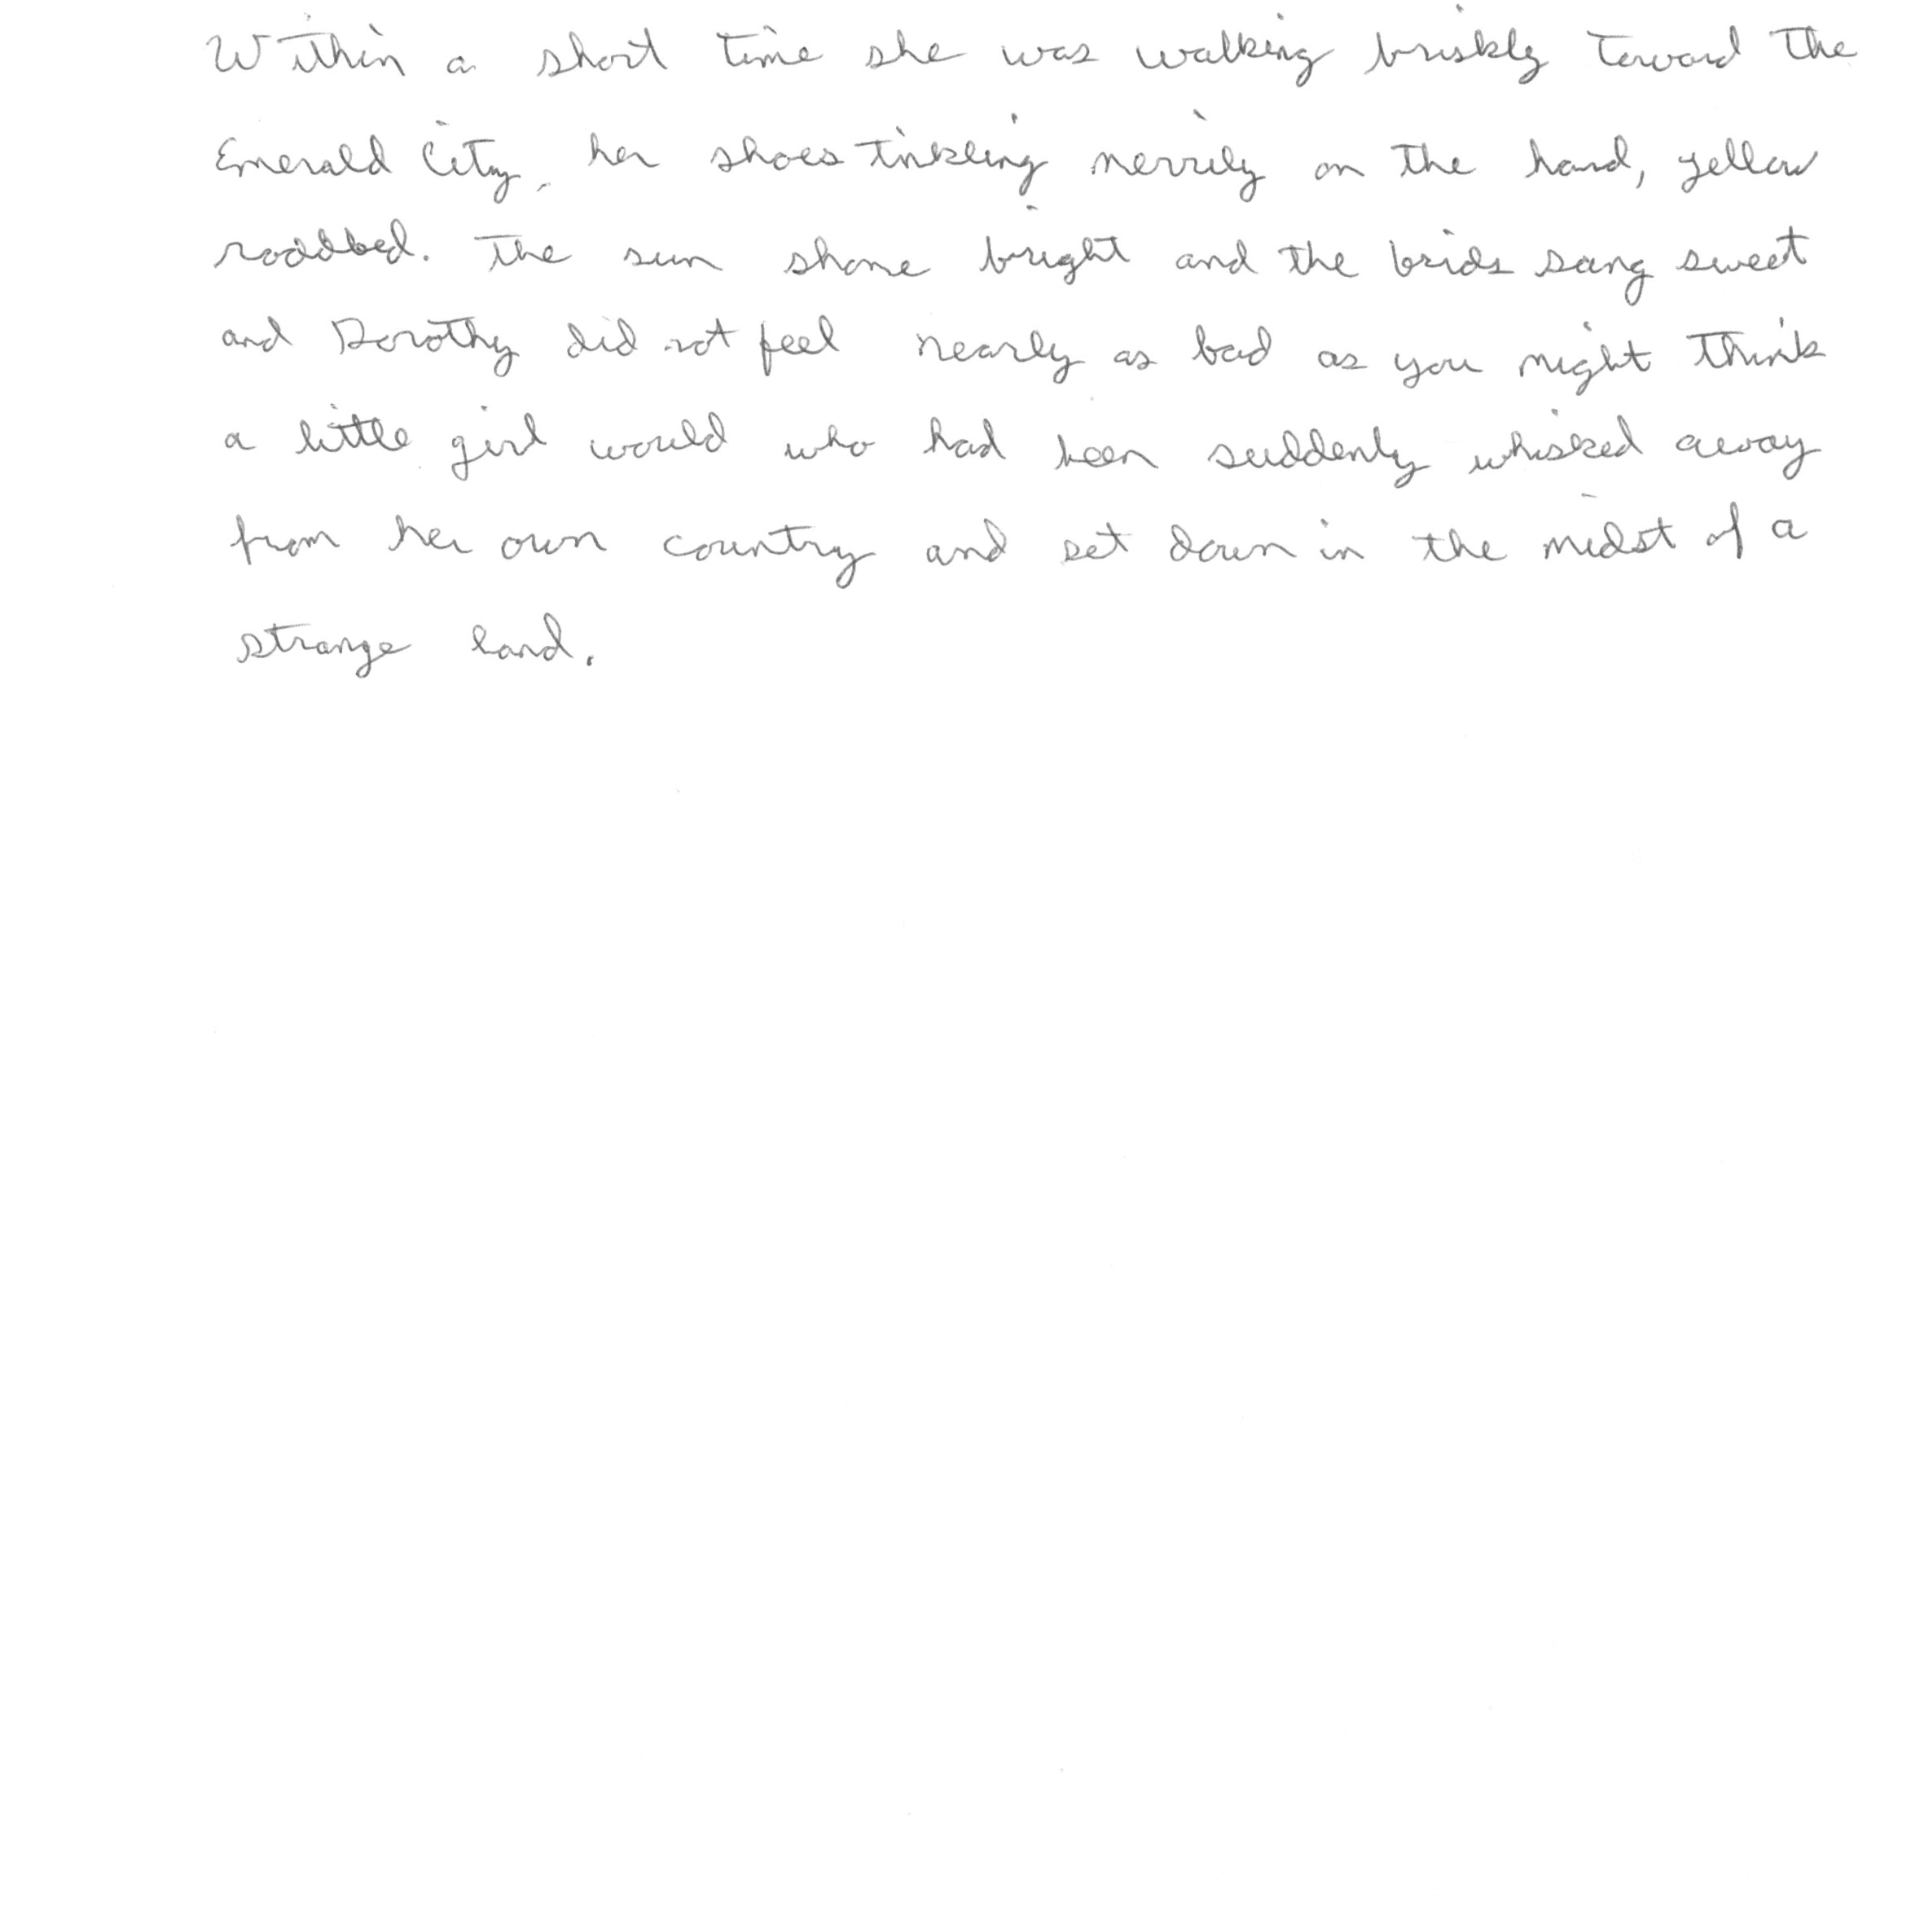 Within a short time she was walking briskly toward the
Emerald City, her shoes tinkling merrily on the hard, yellow
roadbed. The sun shone bright and the birds sang sweet
and Dorothy did not feel nearly as bad as you might think
a little girl would who had been suddenly whisked away
from her own country and set down in the midst of a
strange land.